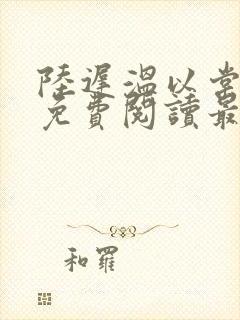 陸遲溫以常
免費閱讀最
和羅